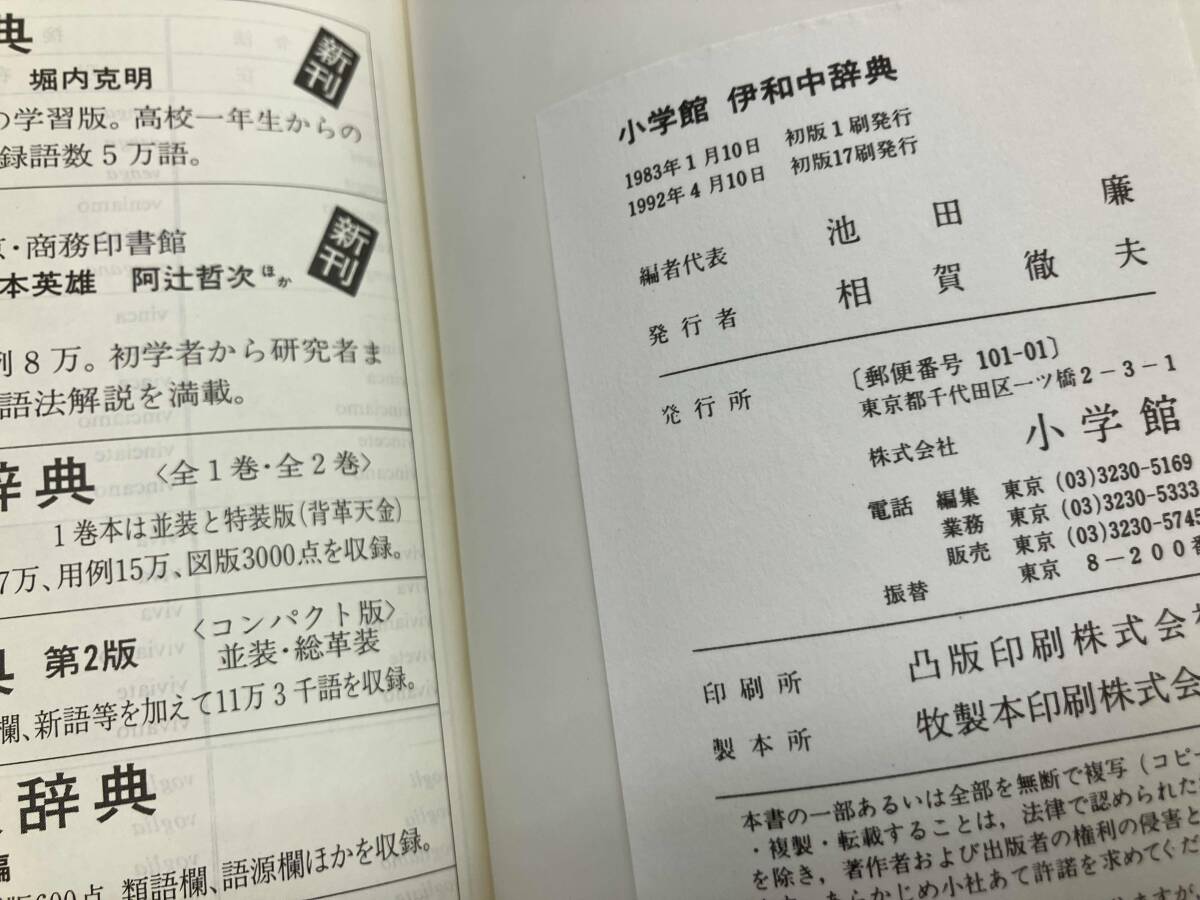 典
堀内克明
新刊
の学習版。高校一年生からの
録語数5万語。
京・商務印書館
新刊
本英雄 阿辻哲次ほか
例8万。初学者から研究者ま
語法解説を満載。
辞典 〈全1巻・全2巻〉
1巻本は並装と特装版(背革天金)
7万、用例15万、図版3000点を収録。
典 第2版 〈コンパクト版〉
並装・総革装
欄、新語等を加えて11万3千語を収録。
辞典
編
版600点、類語欄、語源欄ほかを収録。
小学館 伊和中辞典
1983年1月10日 初版1刷発行
1992年4月10日 初版17刷発行
編者代表 池田 廉
発行者 相賀徹夫
発行所 〔郵便番号 101-01〕
東京都千代田区一ツ橋2-3-1
株式会社 小学館
電話 編集 東京 (03)3230-5169
業務 東京 (03)3230-5333
販売 東京 (03)3230-5745
振替 東京 8-200番
印刷所 凸版印刷株式会社
製本所 牧製本印刷株式会
本書の一部あるいは全部を無断で複写(コピー
・複製・転載することは,法律で認められた
を除き,著作者および出版者の権利の侵害と
あらかじめ小社あて許諾を求めてくだ